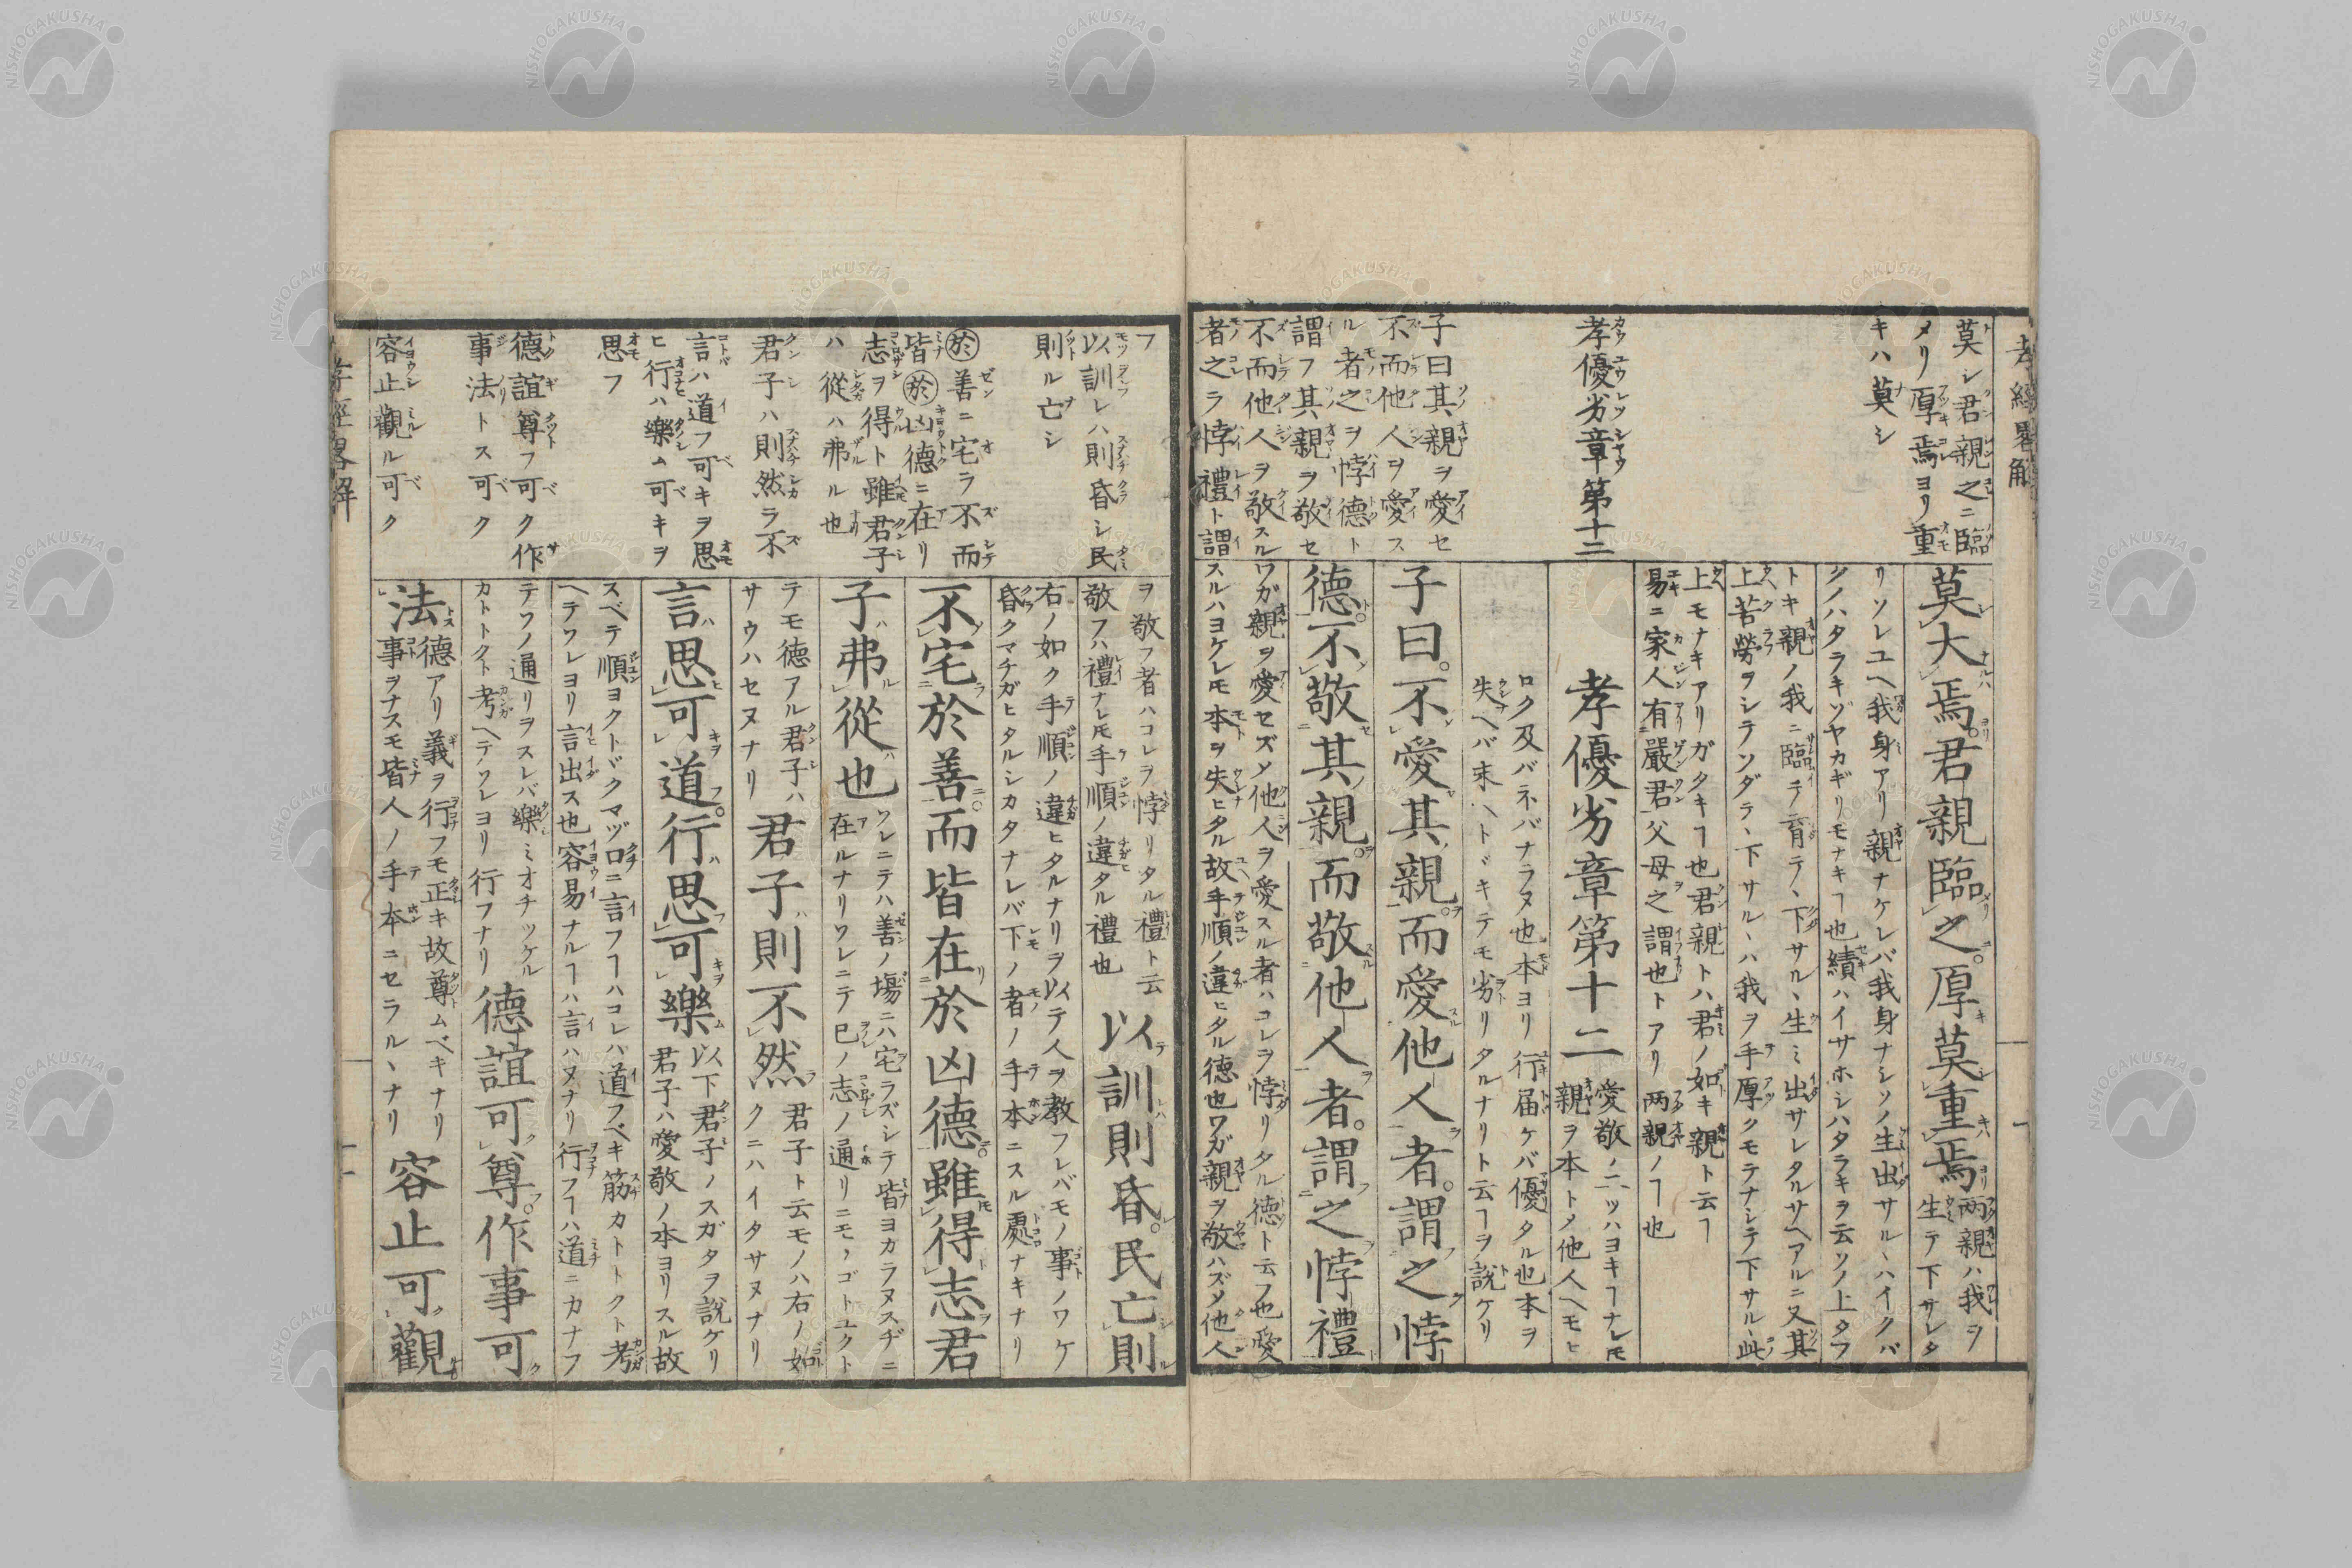 孝經畧解
莫シ君親之ニ臨
メリ厚焉ヨリ重
キハ莫シ
孝優劣章第十二
子曰其親ヲ愛セ
不而他人ヲ愛ス
ル者之ヲ悖德ト
謂フ其親ヲ敬セ
不而他人ヲ敬スル
者之ヲ悖禮ト謂
莫大焉君親臨之厚莫重焉
両親ハ我ヲ
生テ下サレタ
リソレユヘ我身アリ親ナケレバ我身ナシソノ生出サル丶ハイクバ
クノハタラキゾヤカギリモナキヿ也績ハイサホシハタラキヲ云ソノ上タフ
トキ親ノ我ニ臨テ育テ丶下サル丶生ミ出サレタルサヘアルニ又其
上苦勞ヲシテソダテ丶下サル丶ハ我ヲ手厚クモテナシテ下サル丶此
上モナキアリガタキヿ也君親トハ君ノ如キ親ト云ヿ
易ニ家人有嚴君父母之謂也トアリ両親ノヿ也
孝優劣章第十二
愛敬ノ二ツハヨキヿナレ𪜈
親ヲ本トメ他人ヘモヒ
ロク及バネバナラヌ也本ヨリ行届ケバ優タル也本ヲ
失ヘバ末ヘトドキテモ劣リタルナリト云ヿヲ説ケリ
子曰不愛其親而愛他人者謂之悖
德不敬其親而敬他人者謂之悖禮
ワガ親ヲ愛セズメ他人ヲ愛スル者ハコレヲ悖リタル德ト云フ也愛
スルハヨケレ𪜈本ヲ失ヒタル故手順ノ違ヒタル德也ワガ親ヲ敬ハズメ他人
フ
以訓レハ則昏シ民
則ル亡シ
於善ニ宅ラ不而
皆於凶德ニ在リ
志ヲ得ト雖君子
ハ從ハ弗ル也
君子ハ則然ラ不
言ハ道フ可キヲ思
ヒ行ハ樂ム可キヲ
思フ
德誼尊フ可ク作
事法トス可ク
容止觀ル可ク
ヲ敬フ者ハコレヲ悖リタル禮ト云
敬フハ禮ナレ𪜈手順ノ違タル禮也
以訓則昏民亡則
右ノ如ク手順ノ違ヒタルナリヲ以テ人ヲ教フレバモノ事ノワケ
昏クマチガヒタルシカタナレバ下ノ者ノ手本ニスル處ナキナリ
不宅於善而皆在於凶德雖得志君
子弗從也
ワレニテハ善ノ場ニハ宅ラズシテ皆ヨカラヌスヂニ
在ルナリワレニテ已ノ志ノ通リニモノゴトユクト
テモ德アル君子ハ
サウハセヌナリ
君子則不然
君子ト云モノハ右ノ如
クニハイタサヌナリ
言思可道行思可樂
以下君子ノスガタヲ說ケリ
君子ハ愛敬ノ本ヨリスル故
スベテ順ヨクトドクマヅ口ニ言フヿハコレハ道フベキ筋カトトクト考
ヘテワレヨリ言出ス也容易ナルヿハ言ハヌナリ行フヿハ道ニカナフ
テワノ通リヲスレバ樂ミオチツケル
カトトクト考ヘテソレヨリ行フナリ
德誼可尊作事可
法
德アリ義ヲ行フモ正キ故尊ムベキナリ
事ヲナスモ皆人ノ手本ニセラル丶ナリ
容止可觀
孝經畧解
NISHOGAKUSHA